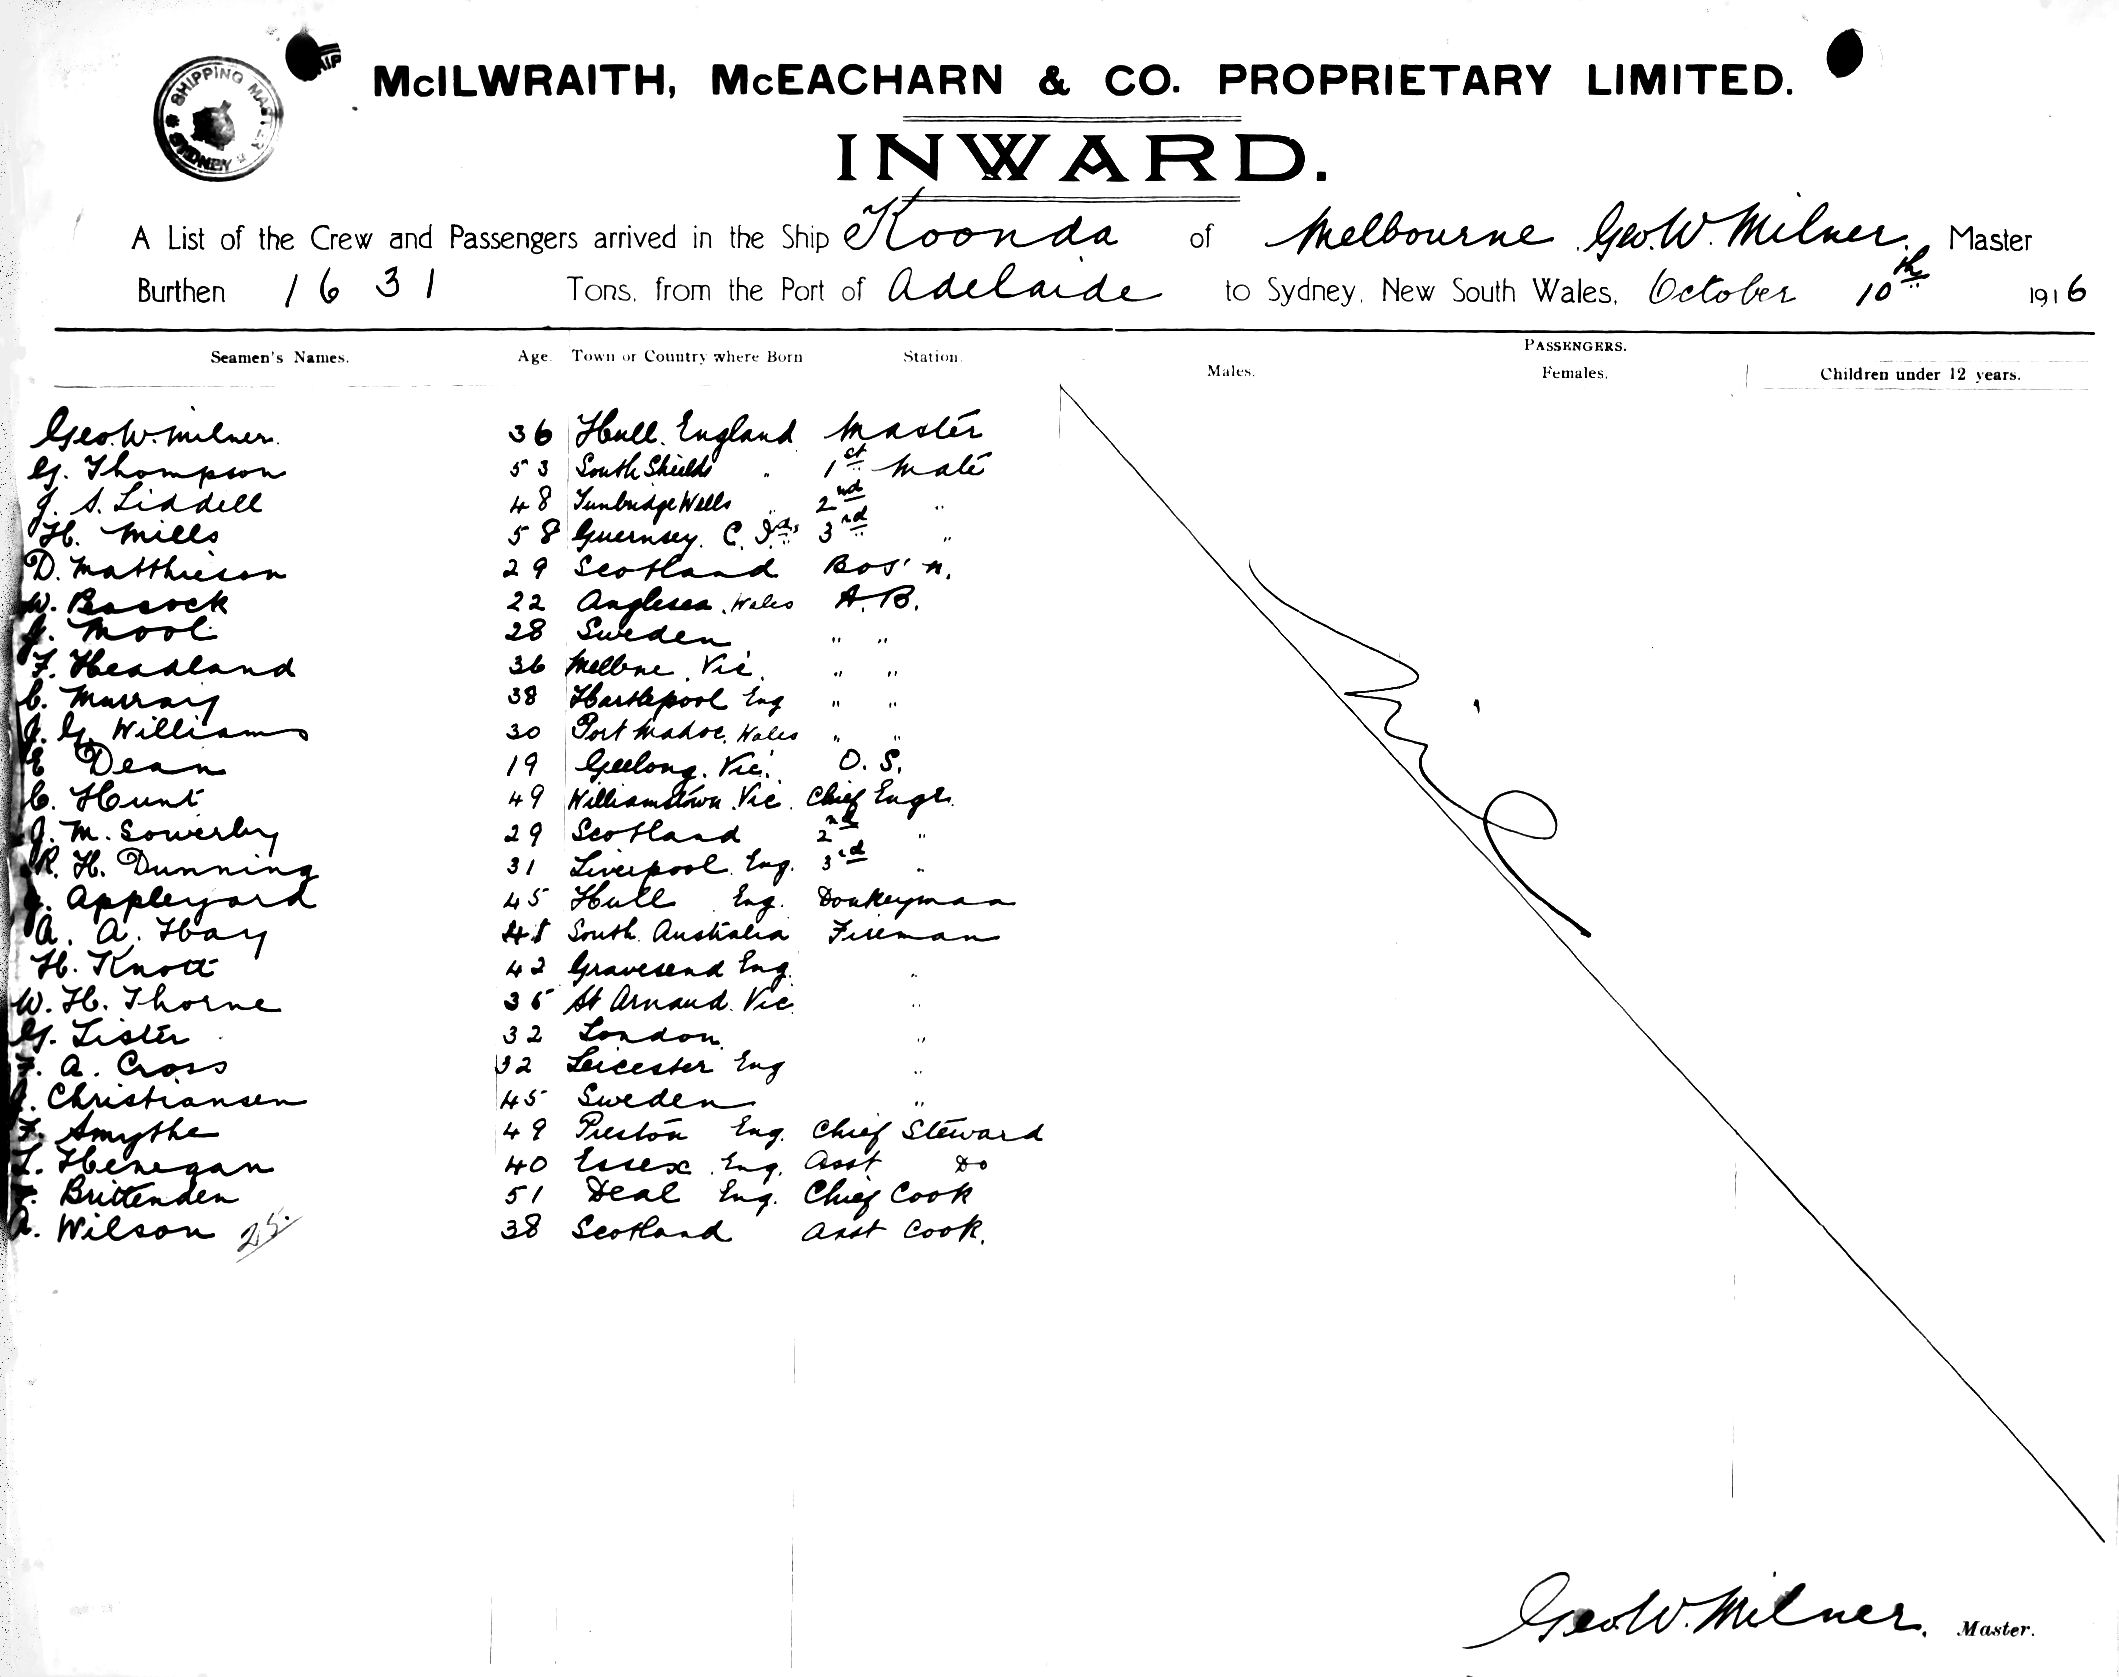 SHIPPING MASTER
SYDNEY
McILWRAITH, McEACHARN & CO. PROPRIETARY LIMITED.
INWARD.
A List of the Crew and Passengers arrived in the Ship Koonda of Melbourne Geo. W. Milner. Master
Burthen 1631 Tons, from the Port of Adelaide to Sydney, New South Wales, October 10th 1916
Seamen's Names. Age. Town or Country where Born Station.
PASSENGERS.
Males. Females. Children under 12 years.
Geo. W. Milner. 36 Hull. England Master
G. Thompson 53 South Shields " 1st Mate
J. S. Liddell 48 Tunbridge Wells " 2nd "
H. Mills 58 Guernsey. C. Ids 3rd "
D. Matthieson 29 Scotland Bos'n.
W. 22 Anglesea. Wales A.B.
J. Mool 28 Sweden " "
F. Headland 36 Melbne. Vic. " "
C. Murray 38 Hartlepool Eng " "
J. G. Williams 30 Port Madoc. Wales " "
E Dean 19 Geelong. Vic. O. S.
C. Hunt 49 Williamstown. Vic. Chief Engr.
J. M. Sowerby 29 Scotland 2nd "
R. H. Dunning 31 Liverpool. Eng. 3rd "
Appleyard 45 Hull Eng. Donkeyman
A. A. Hay South Australia Fireman
H. Knott 42 Gravesend Eng. "
W. H. Thorne 36 St Arnaud. Vic. "
G. Lister 32 London. "
F. A. Cross 32 Leicester Eng "
Christiansen 45 Sweden "
F. Smythe 49 Preston Eng. Chief Steward
L. Henegan 40 Essex. Eng. Asst Do
Brittenden 51 Deal Eng. Chief Cook
A. Wilson 25. 38 Scotland Asst Cook.
Nil
Geo. W. Milner. Master.